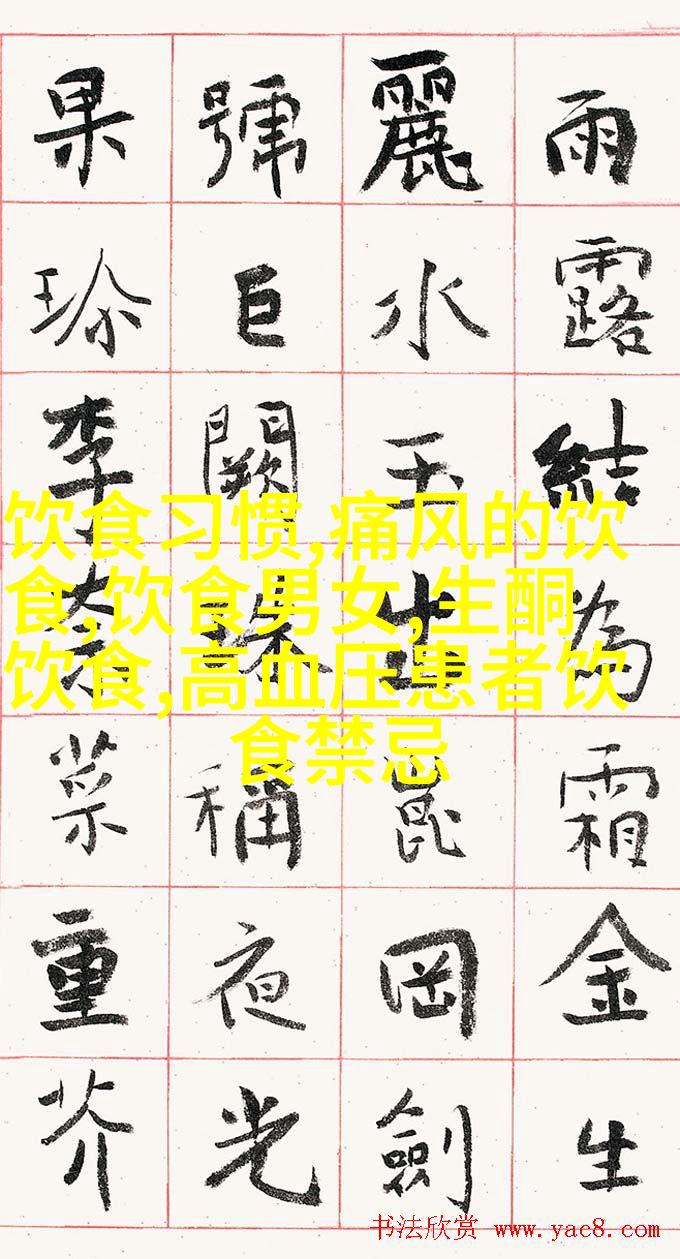 雨露結為霜金生
麗水玉出崑岡劍
號巨闕珠稱夜光
果珎李柰菜重芥
饮食习惯,痛风的饮
食,饮食男女,生酮
饮食,高血压患者饮
食禁忌
书法欣赏 www.yac8.com